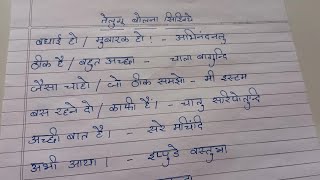 तेलुगु बोलना सिखिये
बधाई हो / मुबारक हो! - अभिनन्दनलु
ठीक है / बहुत अच्छा - चाला बागुन्दि
जैसा चाहो / जो ठीक समझो - मी इष्टम
बस रहने दो / काफी है। - चालु सरिपोतुन्दि
अच्छी बात है। - सरे मंचिदि
अभी आया। - इप्पुडे वस्तुन्ना